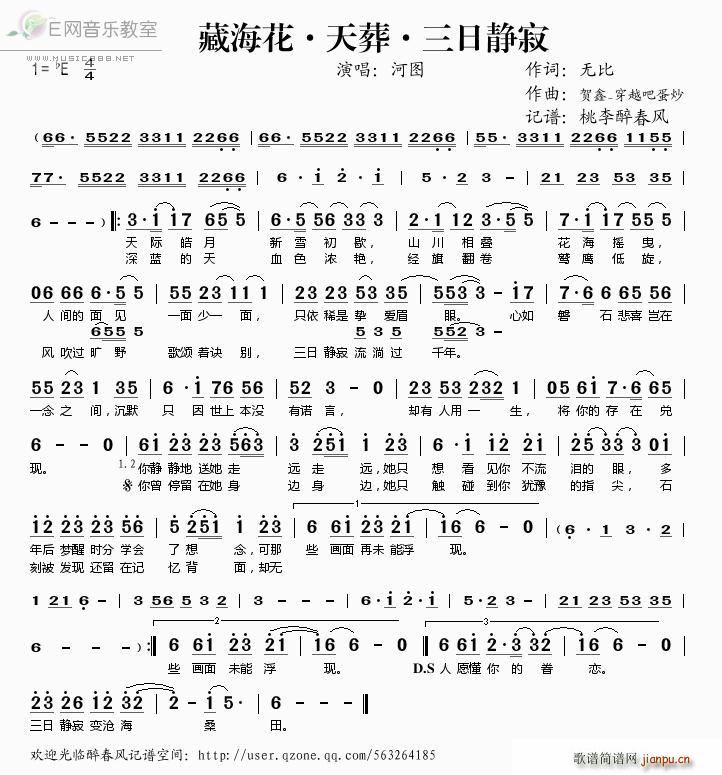 E网音乐教室
www.music888.net
藏海花·天葬·三日静寂
1=♭E 4/4
演唱：河图
作词：无比
作曲：贺鑫-穿越吧蛋炒
记谱：桃李醉春风
(66· 5522 3311 2266 | 66· 5522 3311 2266 | 55· 3311 2266 1155 |
77· 5522 3311 2266 | 6·i 2·i | 5·2 3- | 21 23 53 35 |
6---) ‖: 3·i i7 65 5 | 6·5 56 33 3 | 2·1 12 3·5 5 | 7·i i7 55 5 |
天际皓月 新雪初歇， 山川相叠 花海摇曳，
深蓝的天 血色浓艳， 经旗翻卷 鹫鹰低旋，
06 66 6·5 5 | 55 23 11 1 | 35 23 53 35 | 553 3- i7 | 7·6 65 65 56 |
人间的面见 一面少一面， 只依稀是挚爱眉 眼。 心如 磐石悲喜岂在
655 5 5 3 5 52 3 -
风吹过旷野 歌颂着诀别， 三日静寂流淌过 千年。
55 23 1 35 | 6·i 76 56 | 52 3-0 | 23 53 232 1 | 05 6i 7·6 65 |
一念之间，沉默 只因世上本没 有诺言， 却有人用一生， 将你的存在兑
6--0 | 6i 23 23 563 | 3 251 i 23 | 6·6 i2 2i | 25 33 3 0i |
现。 1.2你静静地送她走 远走远，她只 想看见你不流 泪的眼，多
𝄋你曾停留在她身 边身边，她只 触碰到你犹豫 的指尖，石
i2 23 23 56 | 5 251 i 23 | 6 6i 23 2i | i6 6-0 | (6 i 3·2 |
年后梦醒时分学会 了想念，可那 些画面再未能浮 现。
刻被发现还留在记 忆背面，却无
1
1 21 6- | 3 56 5 32 | 3--- | 6·i 2·i | 5·2 3- | 21 23 53 35 |
6---) :‖ 6 6i 23 2i | i6 6-0 ‖ 6 6i 2·3 32 | i6 6-0 |
2
3
些画面未能浮 现。 D.S 人愿懂你的眷 恋。
23 26 i2 32 | 2-i 5· | 6--- ‖
三日静寂变沧海 桑 田。
欢迎光临醉春风记谱空间：http://user.qzone.qq.com/563264185
歌谱简谱网
jianpu.cn